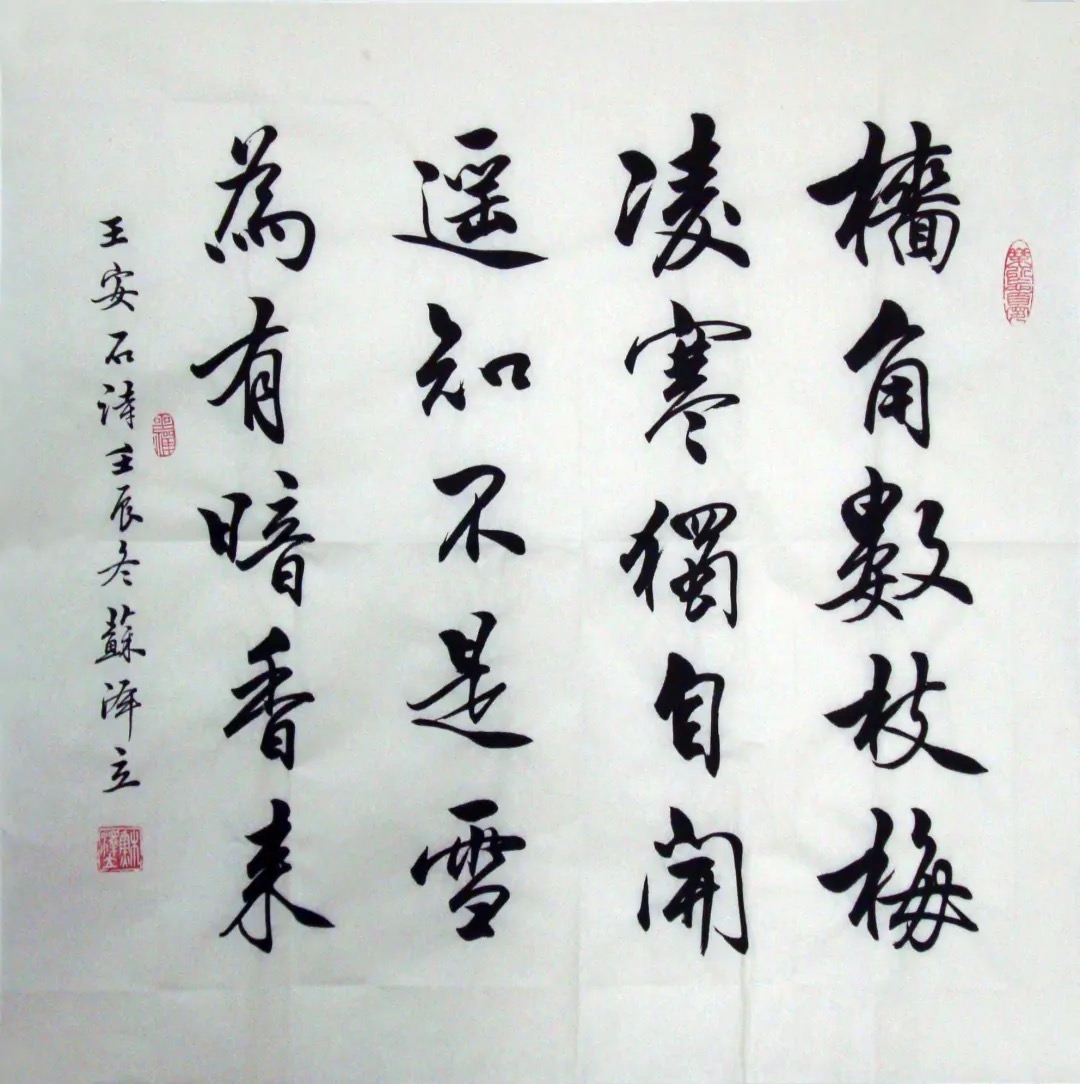 檣角數枝梅
凌寒獨自開
遥知不是雪
為有暗香来
王安石詩壬辰冬蘇澤立